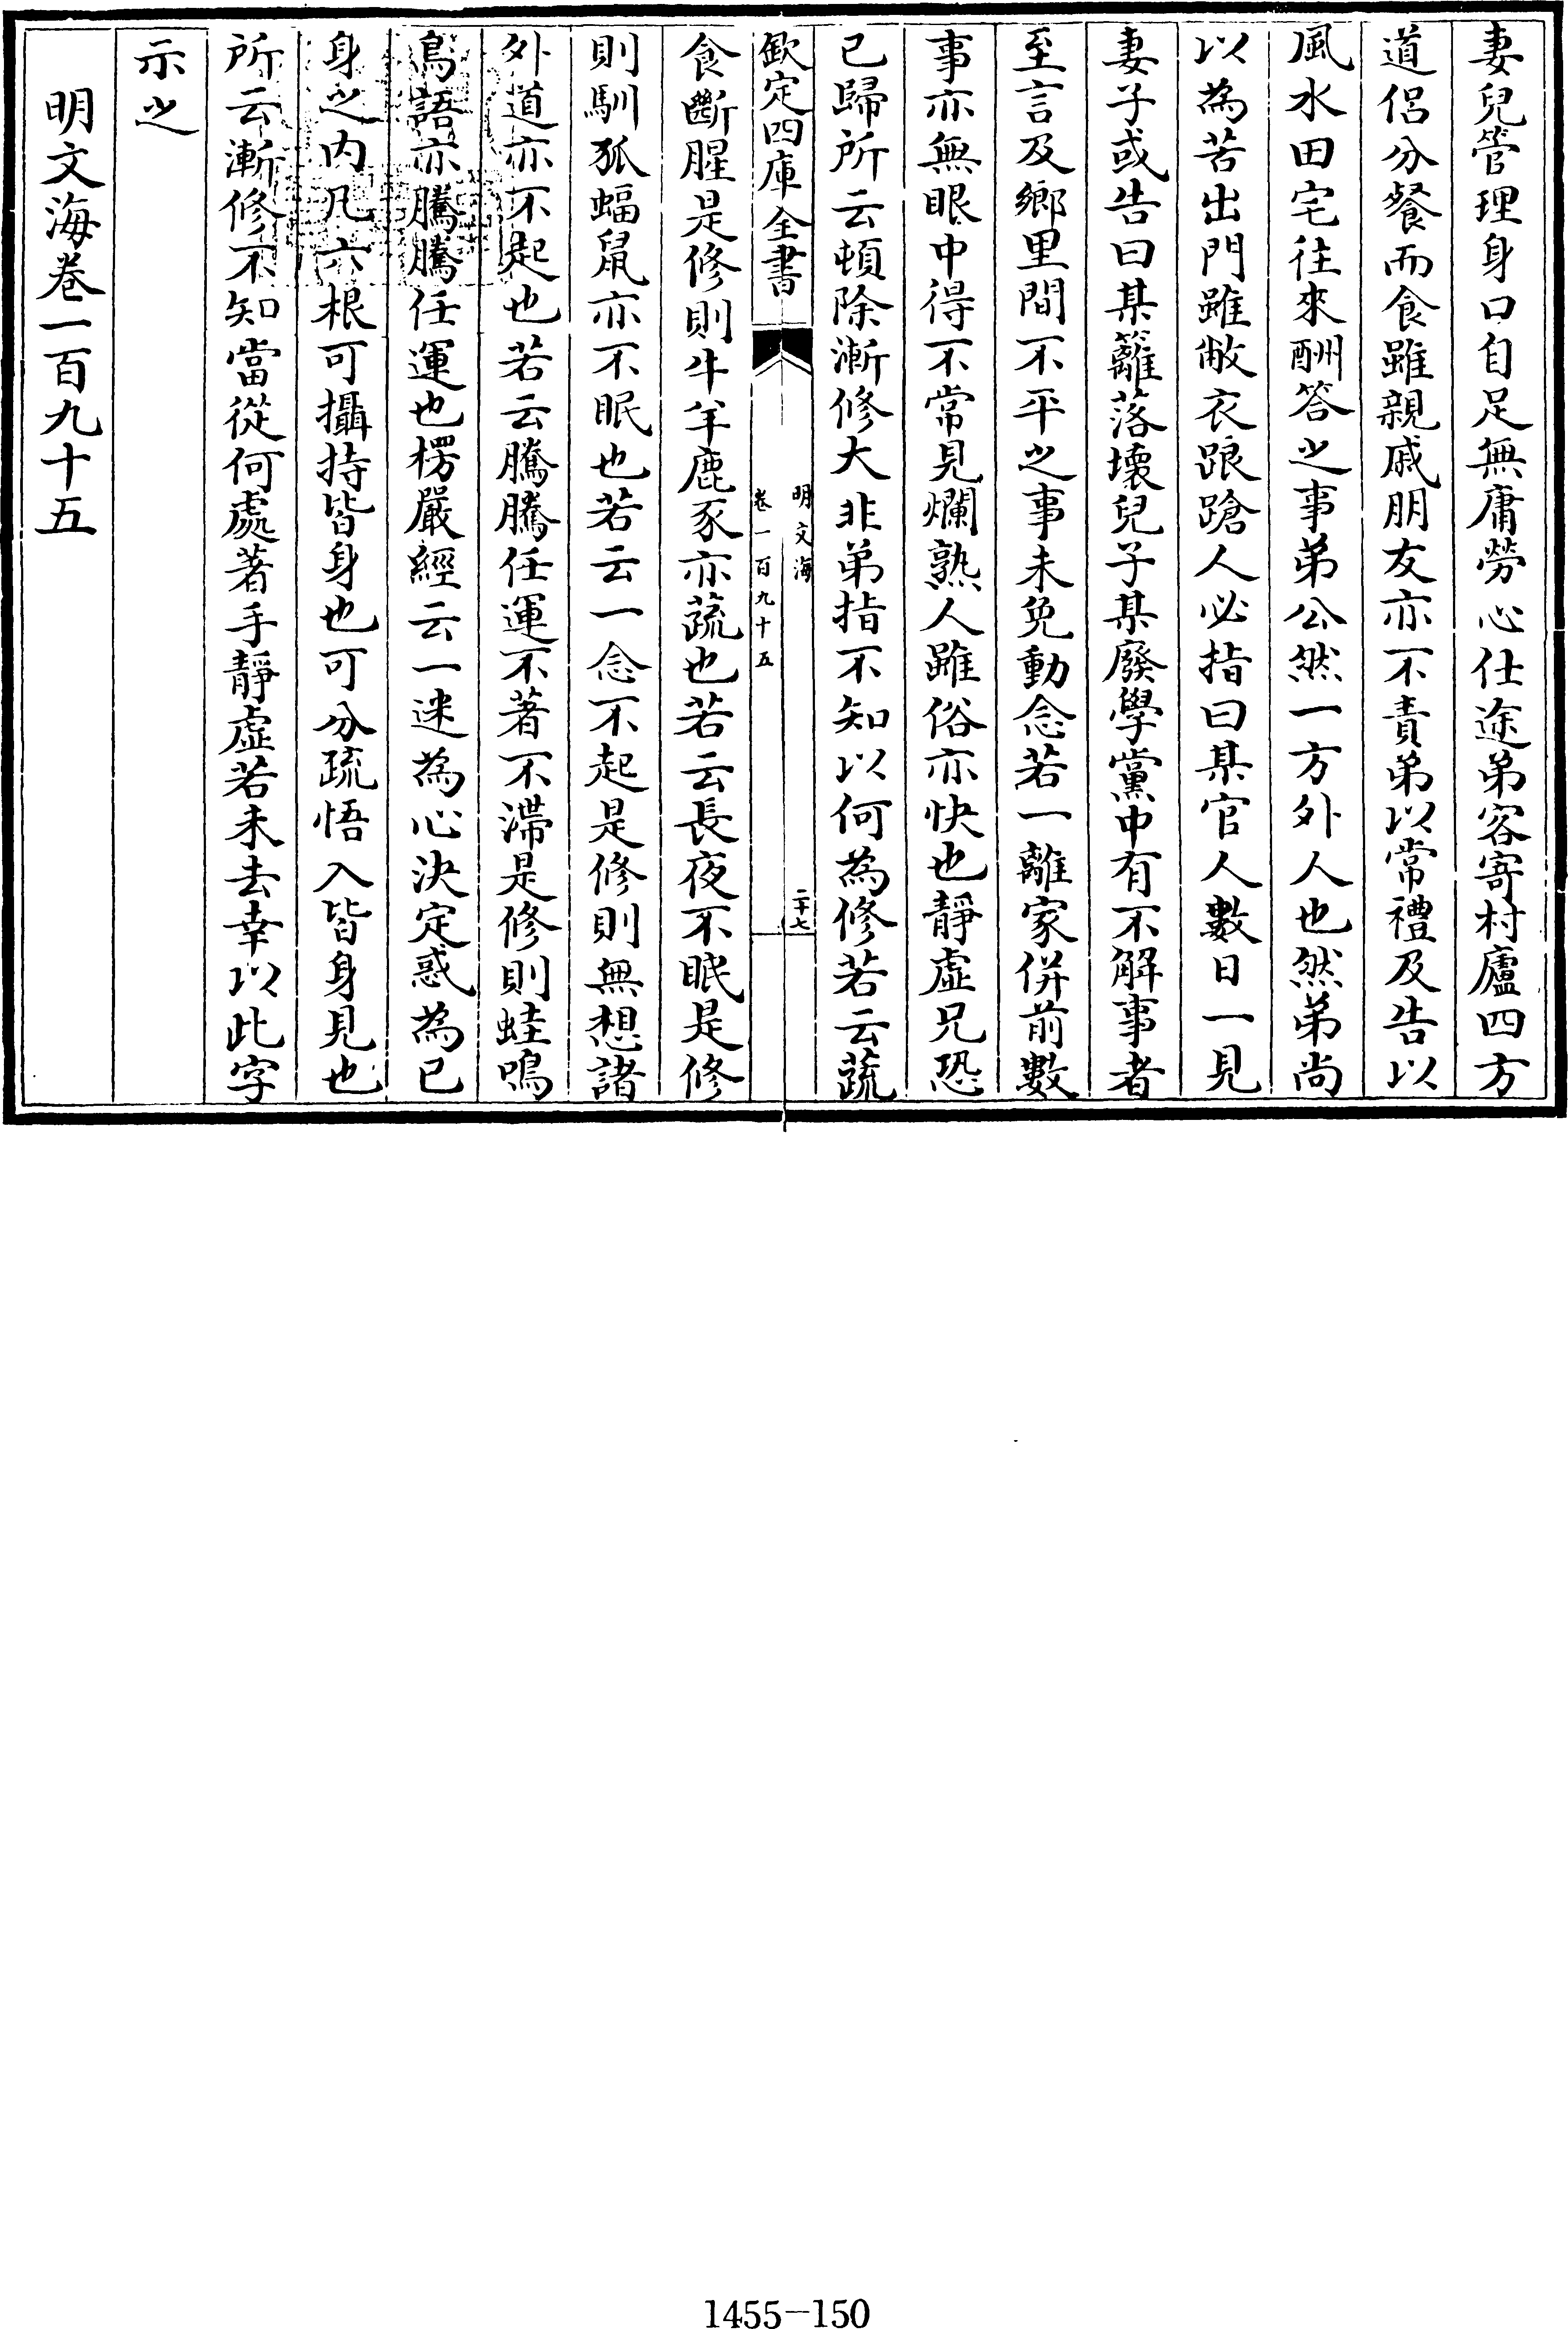 妻兒管理身口自足無庸勞心仕途弟客寄村廬四方
道侣分餐而食雖親戚朋友亦不責弟以常禮及告以
風水田宅往來酬答之事弟公然一方外人也然弟尚
以為苦出門雖敝衣踉蹌人必指曰某官人數日一見
妻子或告曰某籬落壞兒子某廢學黨中有不解事者
至言及鄉里間不平之事未免動念若一離家併前數
事亦無眼中得不常見爛熟人雖俗亦快也靜虛兄恐
已歸所云頓除漸修大非弟指不知以何為修若云蔬
欽定四庫全書
明文海
卷一百九十五
二十七
食斷腥是修則牛羊鹿豕亦蔬也若云長夜不眠是修
則馴狐蝠鼠亦不眠也若云一念不起是修則無想諸
外道亦不起也若云騰騰任運不著不滯是修則蛙鳴
鳥語亦騰騰任運也楞嚴經云一迷為心決定惑為已
身之内凡六根可攝持皆身也可分疏悟入皆身見也
所云漸修不知當從何處著手靜虛若未去幸以此字
示之
明文海卷一百九十五
1455-150